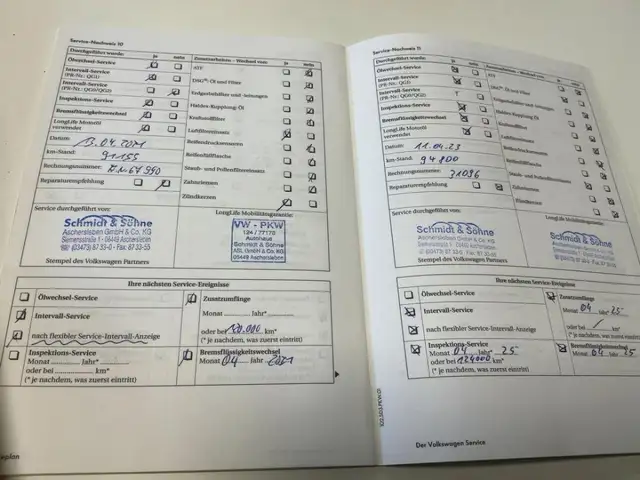 Service-Nachweis 10
Durchgeführt wurde: ja nein
Ölwechsel-Service
Intervall-Service
(PR-Nr.: QG1)
Intervall-Service
(PR-Nr.: QG0/QG2)
Inspektions-Service
Bremsflüssigkeitswechsel
LongLife Motoröl
verwendet
Datum: 13.04.2021
km-Stand: 91155
Rechnungsnummer:
Reparaturempfehlung
Zusatzarbeiten – Wechsel von: ja nein
ATF
DSG®: Öl und Filter
Erdgasbehälter und -leitungen
Haldex-Kupplung: Öl
Kraftstofffilter
Luftfiltereinsatz
Reifendruckssensoren
Reifenfüllflasche
Staub- und Pollenfiltereinsatz
Zahnriemen
Zündkerzen
Service durchgeführt von:
Schmidt & Söhne
Aschersleben GmbH & Co. KG
Siemensstraße 1 · 06449 Aschersleben
(03473) 87 33-0 · Fax: 87 33-53
Stempel des Volkswagen Partners
LongLife Mobilitätsgarantie:
VW - PKW
Autohaus
Schmidt & Söhne
ASL GmbH & Co. KG
06449 Aschersleben
Ihre nächsten Service-Ereignisse
Ölwechsel-Service
Intervall-Service
nach flexibler Service-Intervall-Anzeige
Inspektions-Service
Monat Jahr*
oder bei km*
(* je nachdem, was zuerst eintritt)
Zusatzumfänge
Monat Jahr*
oder bei 120.000 km*
(* je nachdem, was zuerst eintritt)
Bremsflüssigkeitswechsel
Monat 04 Jahr 2021
Service-Nachweis 11
Durchgeführt wurde: ja nein
Ölwechsel-Service
Intervall-Service
(PR-Nr.: QG1)
Intervall-Service
(PR-Nr.: QG0/QG2)
Inspektions-Service
Bremsflüssigkeitswechsel
LongLife Motoröl
verwendet
Datum: 11.04.23
km-Stand: 94800
Rechnungsnummer: 71096
Reparaturempfehlung
Zusatzarbeiten – Wechsel von: ja nein
ATF
DSG®: Öl und Filter
Erdgasbehälter und -leitungen
Haldex-Kupplung: Öl
Kraftstofffilter
Luftfiltereinsatz
Reifendruckssensoren
Reifenfüllflasche
Staub- und Pollenfiltereinsatz
Zahnriemen
Zündkerzen
Service durchgeführt von:
Schmidt & Söhne
Aschersleben GmbH & Co. KG
Stempel des Volkswagen Partners
LongLife Mobilitätsgarantie:
Schmidt & Söhne
Ihre nächsten Service-Ereignisse
Ölwechsel-Service
Intervall-Service
nach flexibler Service-Intervall-Anzeige
Inspektions-Service
Monat 04 Jahr* 25
oder bei 124000 km*
(* je nachdem, was zuerst eintritt)
Zusatzumfänge
Monat 04 Jahr* 25
oder bei / km*
(* je nachdem, was zuerst eintritt)
Bremsflüssigkeitswechsel
Monat 04 Jahr 25
Der Volkswagen Service